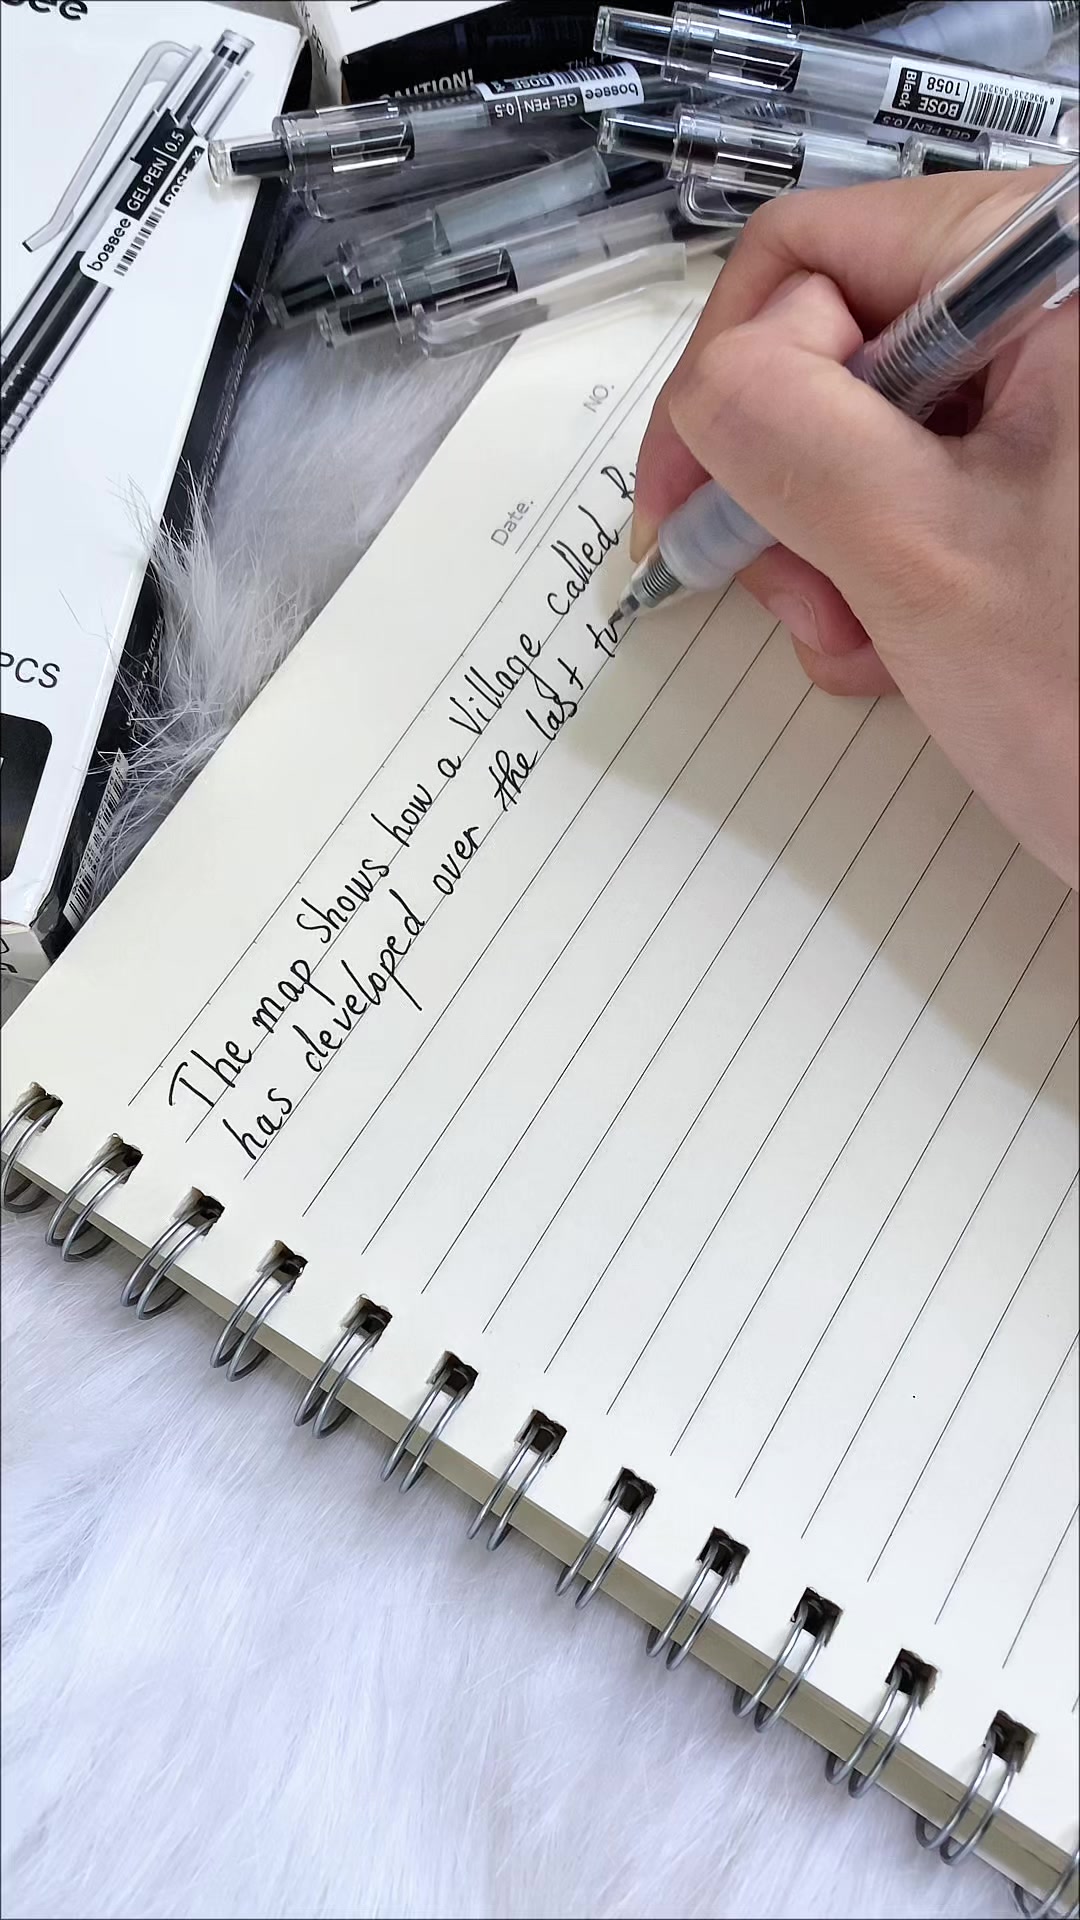 bossee GEL PEN | 0.5
PCS
CAUTION!
bossee GEL PEN | 0.5 BOSE
Black BOSE 1058
GEL PEN / 0.5
NO.
Date.
The map shows how a village called
has developed over the last